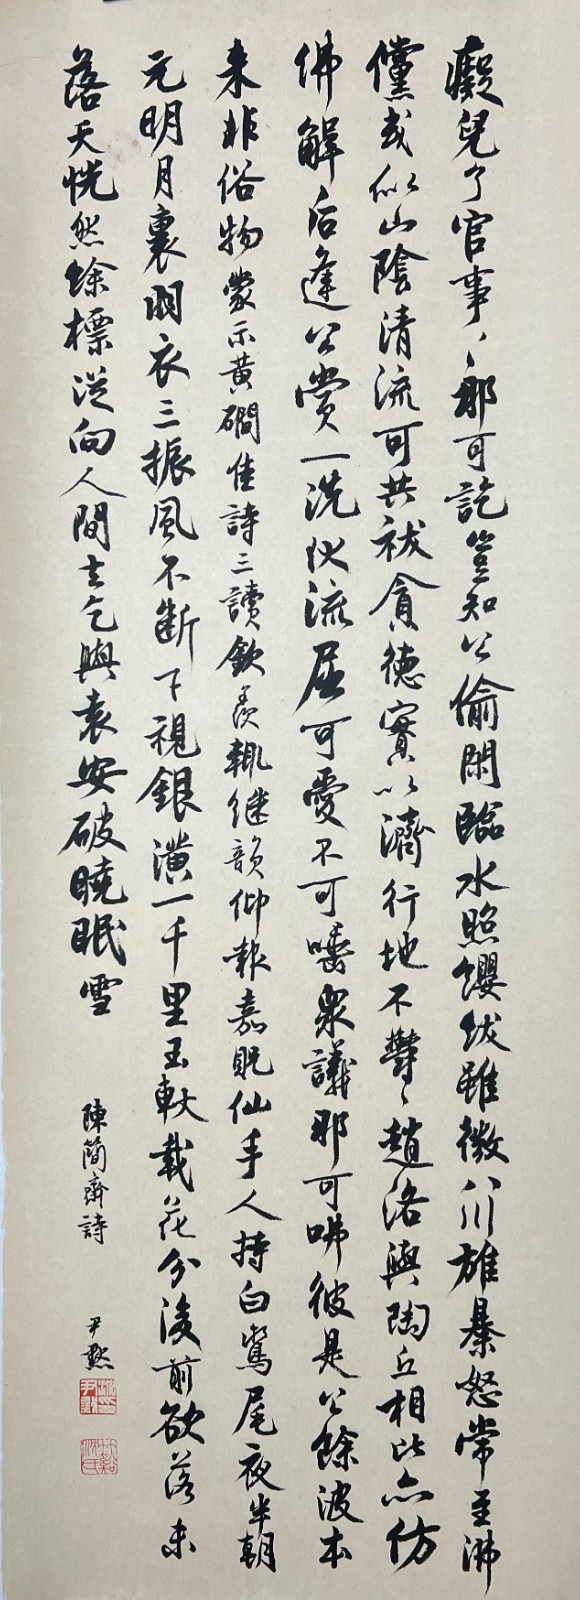 癡兒了官事、那可訖豈知公偷閑臨水照纓紱雖微八川雄暴怒常至沸
儻或似山陰清流可共祓貪德實以濟行地不鬱、趙洛與陶丘相比亦仿
佛解后逢公賞一洗伏流屈可愛不可唾衆議那可咈彼是公餘波本
来非俗物蒙示黃磵佳詩三讀欽羨輒继韻仰報嘉貺仙手人持白鸞尾夜半朝
元明月裏羽衣三振風不斷下視銀潢一千里玉軑載花分後前欲落未
落天恍然餘標從向人間去乞與袁安破曉眠雪
陳簡齋詩
尹默
竹谿沈氏